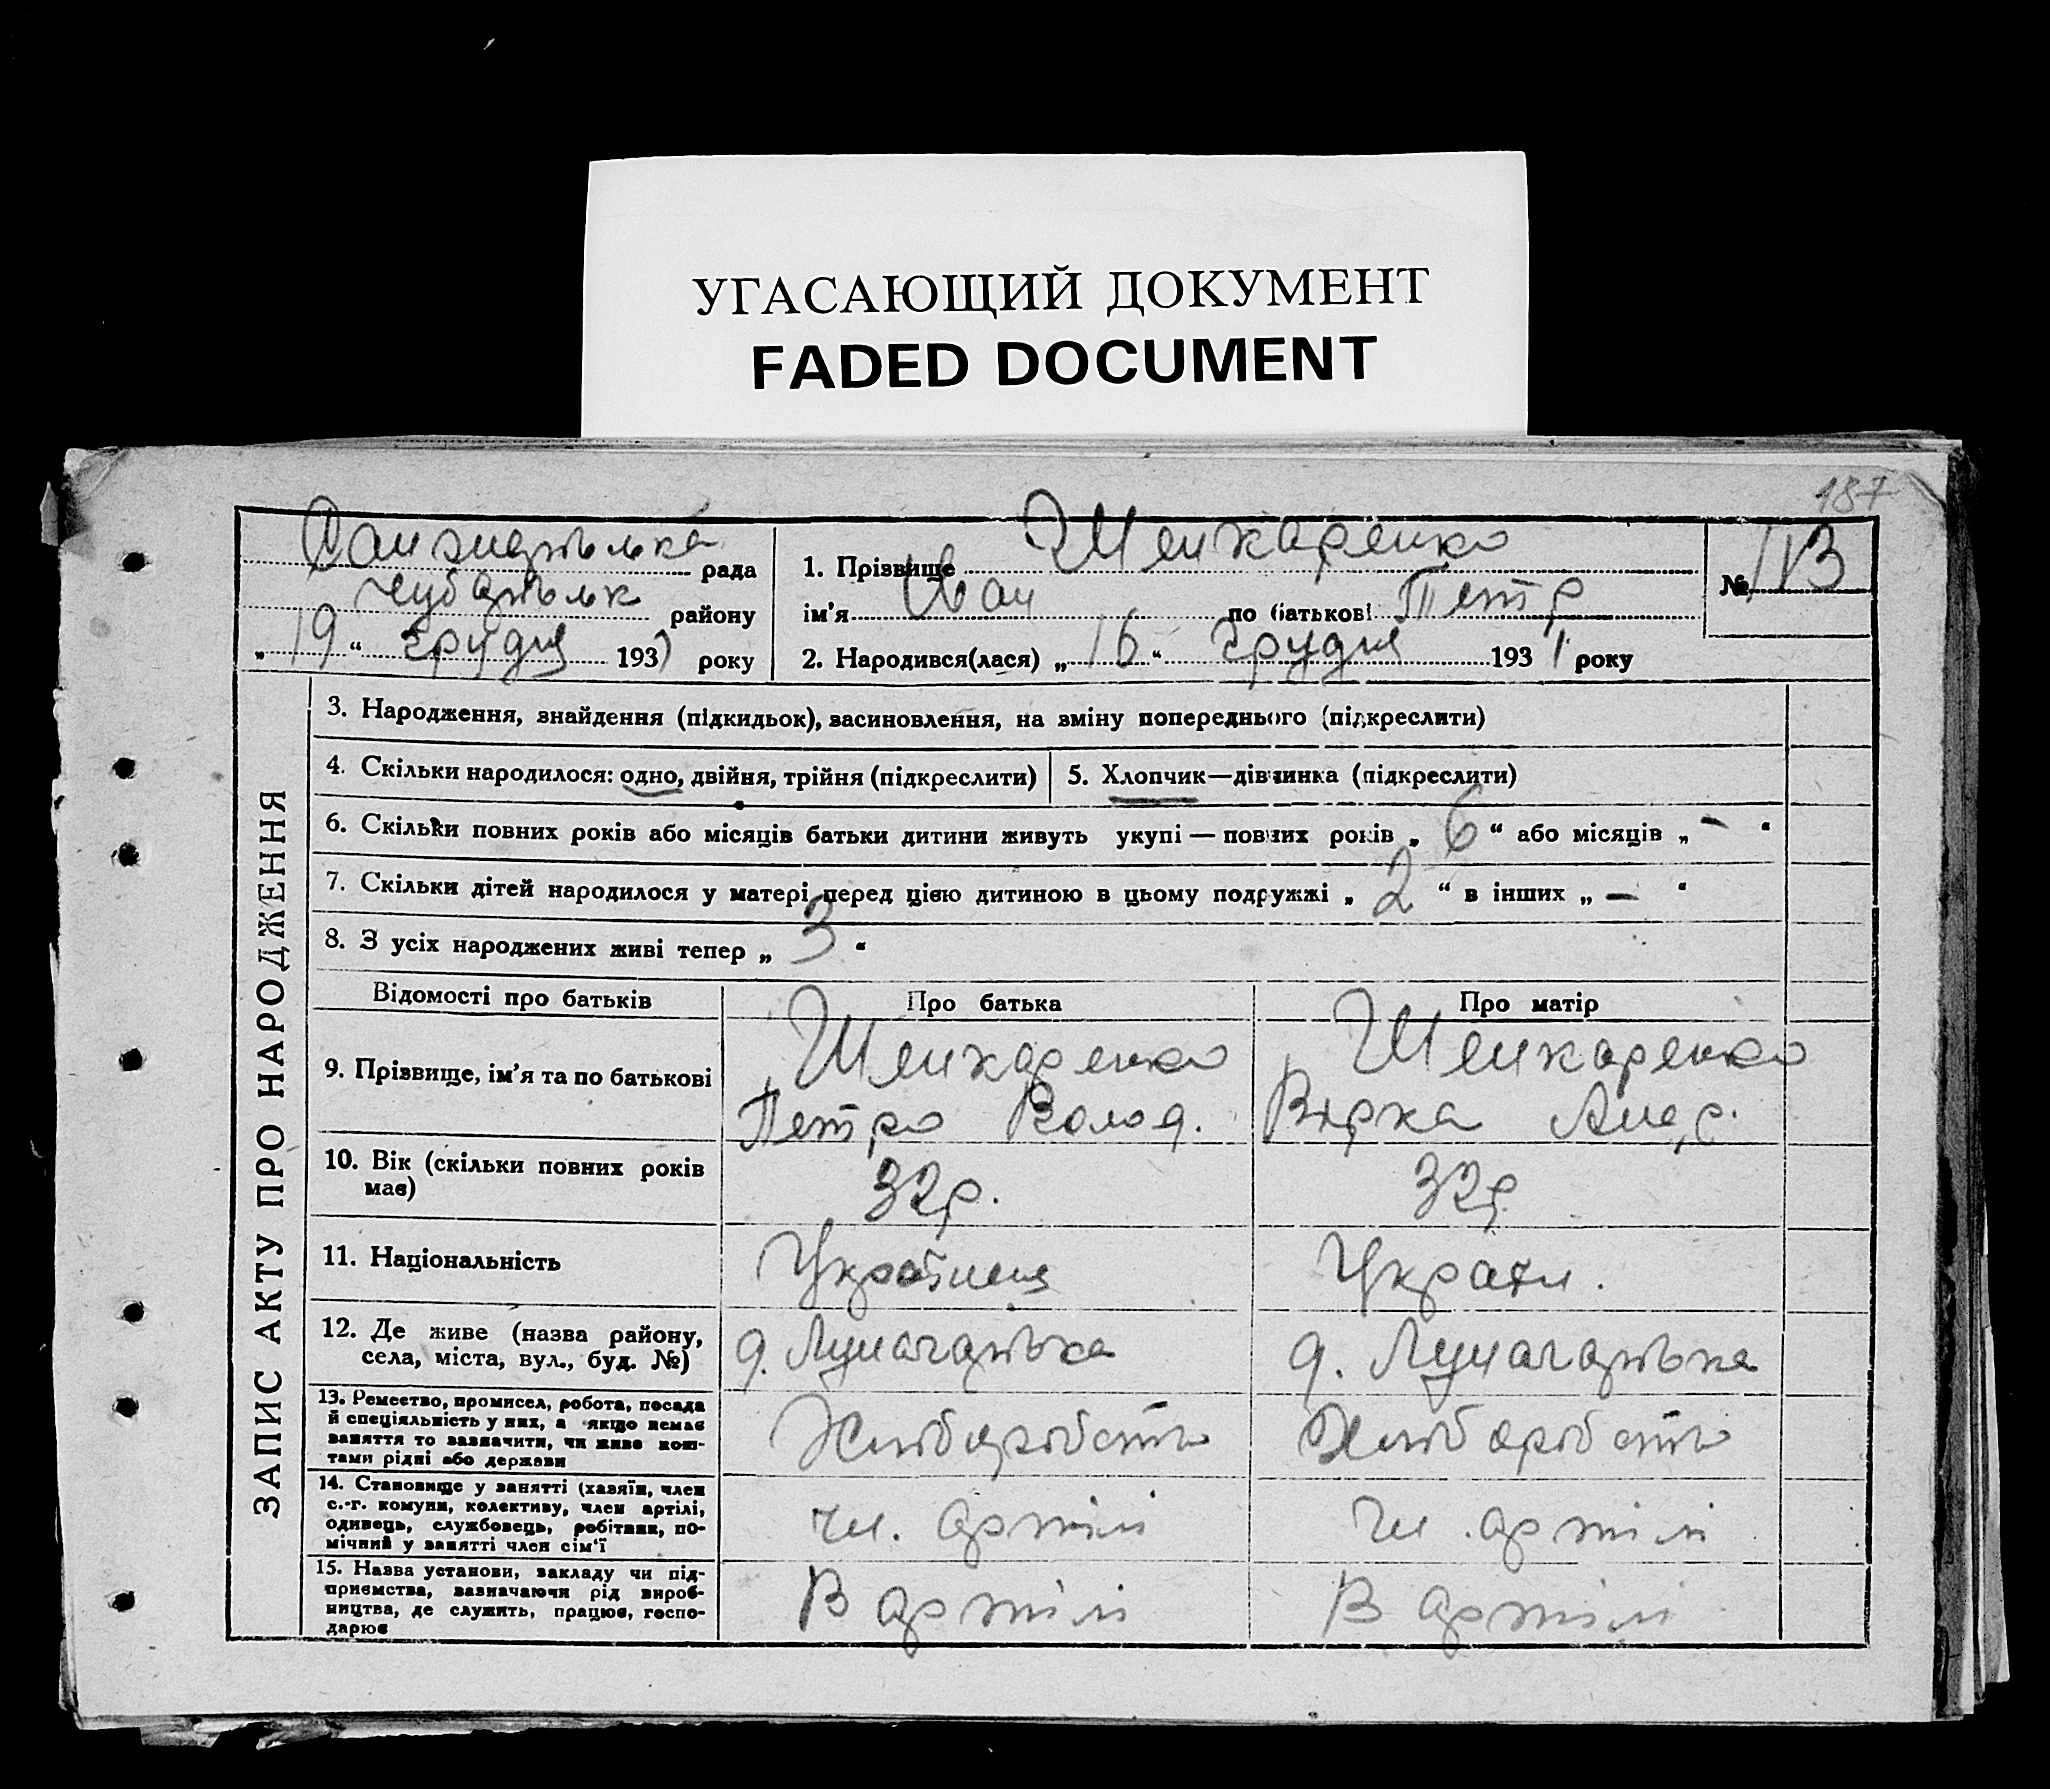 УГАСАЮЩИЙ ДОКУМЕНТ
FADED DOCUMENT
187
рада
району
„19“ грудня 1931 року
1. Прізвище Шенкаренко
ім'я Іван по батькові Петр
2. Народився(лася) „16“ грудня 1931 року
№ 113
ЗАПИС АКТУ ПРО НАРОДЖЕННЯ
3. Народження, знайдення (підкидьок), засиновлення, на зміну попереднього (підкреслити)
4. Скільки народилося: одно, двійня, трійня (підкреслити)
5. Хлопчик—дівчинка (підкреслити)
6. Скільки повних років або місяців батьки дитини живуть укупі — повних років „6“ або місяців „–“
7. Скільки дітей народилося у матері перед цією дитиною в цьому подружжі „2“ в інших „–“
8. З усіх народжених живі тепер „3“
Відомості про батьків Про батька Про матір
9. Прізвище, ім'я та по батькові
Шенкаренко Шенкаренко
Петро Волод. Вірка Андр.
10. Вік (скільки повних років
має)
32р. 32р.
11. Національність
Українец Україн.
12. Де живе (назва району,
села, міста, вул., буд. №)
13. Ремество, промисел, робота, посада
й спеціяльність у них, а якщо немає
заняття то зазначити, чи живе кош-
тами рідні або держави
Хліборобств Хліборобств
14. Становище у занятті (хазяїн, член
с.-г. комуни, колективу, член артілі,
одинець, службовець, робітник, по-
мічний у занятті член сім'ї
чл. артілі чл. артілі
15. Назва установи, закладу чи під-
приємства, зазначаючи рід вироб-
ництва, де служить, працює, госпо-
дарює
В артілі В артілі